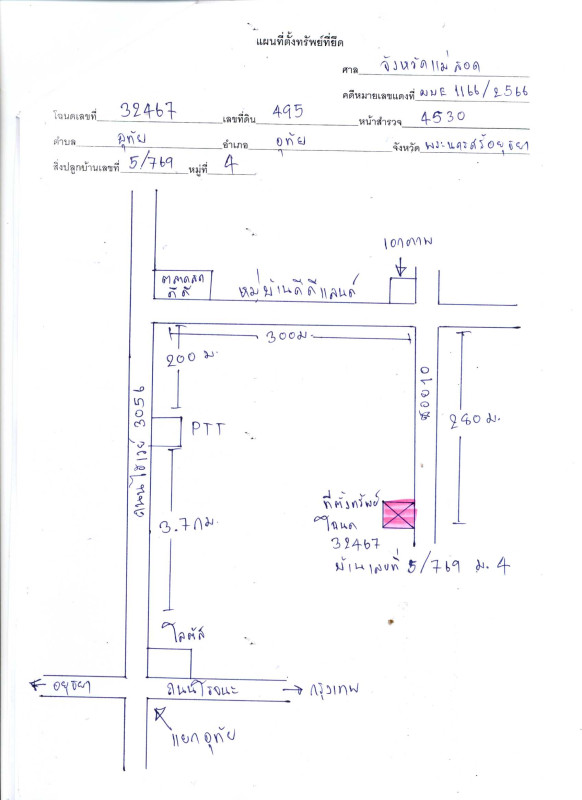 แผนที่ตั้งทรัพย์ที่ยึด
ศาล จังหวัดแม่สอด
คดีหมายเลขแดงที่ ผบE 1166/2566
โฉนดเลขที่ 32467 เลขที่ดิน 495 หน้าสำรวจ 4530
ตำบล อุทัย อำเภอ อุทัย จังหวัด พระนครศรีอยุธยา
สิ่งปลูกบ้านเลขที่ 5/769 หมู่ที่ 4
เอกภาพ
ตลาดสด
ดีดี
หมู่บ้านดีดีแลนด์
300ม.
200 ม.
ซอย10
280 ม.
ถนนไฮเวย์ 3056
PTT
ที่ตั้งทรัพย์
โฉนด
32467
บ้านเลขที่ 5/769 ม. 4
3.7กม.
โลตัส
อยุธยา
ถนนโรจนะ
กรุงเทพ
แยกอุทัย